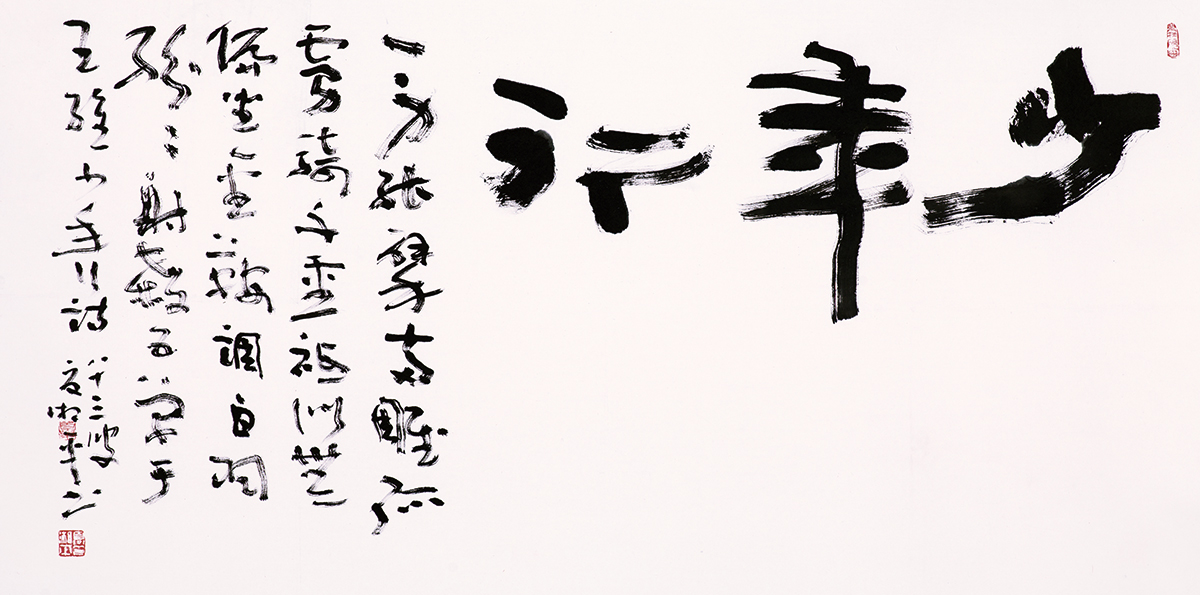 少年行
一身能擘兩雕弧
虜騎千重祇似無
偏坐金鞍調白羽
紛〻射殺五單于
王維少年行詩
八十三叟
夏湘平书